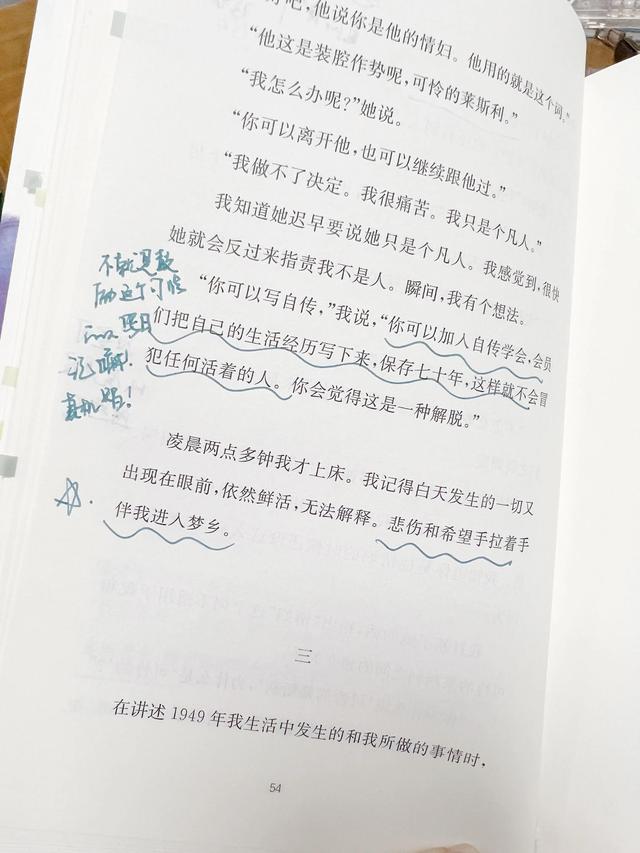 好吧，他说你是他的情妇。他用的就是这个词。”
“他这是装腔作势呢，可怜的莱斯利。”
“我怎么办呢？”她说。
“你可以离开他，也可以继续跟他过。”
“我做不了决定。我很痛苦。我只是个凡人。”
我知道她迟早要说她只是个凡人。我感觉到，很快
她就会反过来指责我不是人。瞬间，我有个想法。
“你可以写自传，”我说，“你可以加入自传学会，会员
们把自己的生活经历写下来，保存七十年，这样就不会冒
犯任何活着的人。你会觉得这是一种解脱。”
凌晨两点多钟我才上床。我记得白天发生的一切又
出现在眼前，依然鲜活，无法解释。悲伤和希望手拉着手
伴我进入梦乡。
三
在讲述1949年我生活中发生的和我所做的事情时，
54